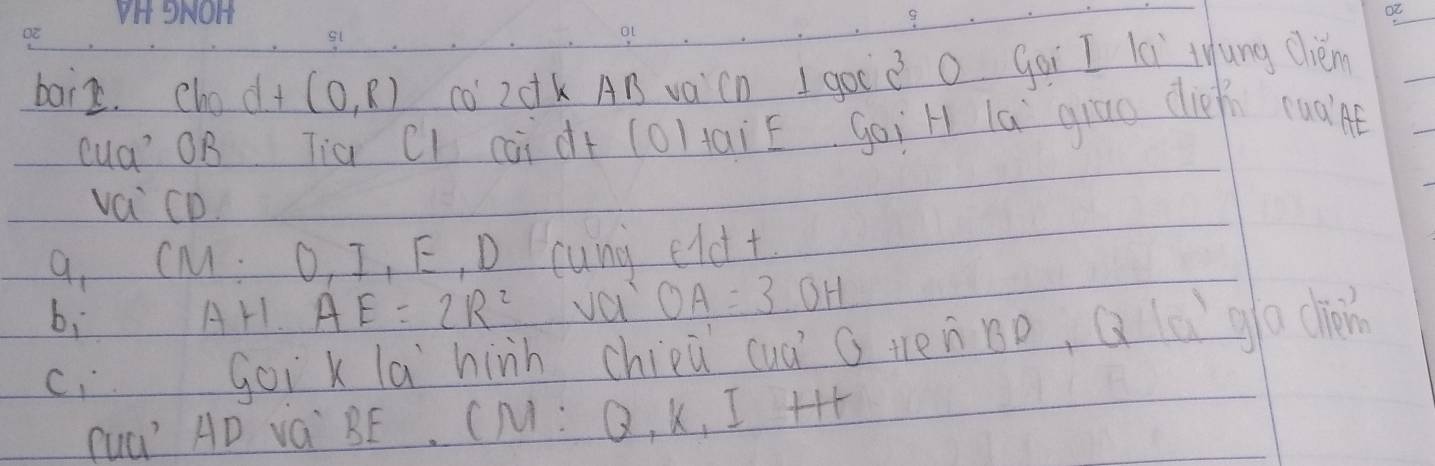 HONG HA
20 15 10 5 20
bài 2. Cho đt (O,R) có 2 đk AB và CD ⊥ góc ở O. Gọi I là trung điểm
của OB Tia CI cắt đt (O) tại E. Gọi H là giao điểm của AE
và CD.
a, CM: O, I, E, D cùng ∈ 1 đt.
b, AH. AE = 2R² và OA = 3.OH
c, Gọi K là hình chiếu của O trên BD, Q là gia điểm
của AD và BE. CM: Q, K, I tht